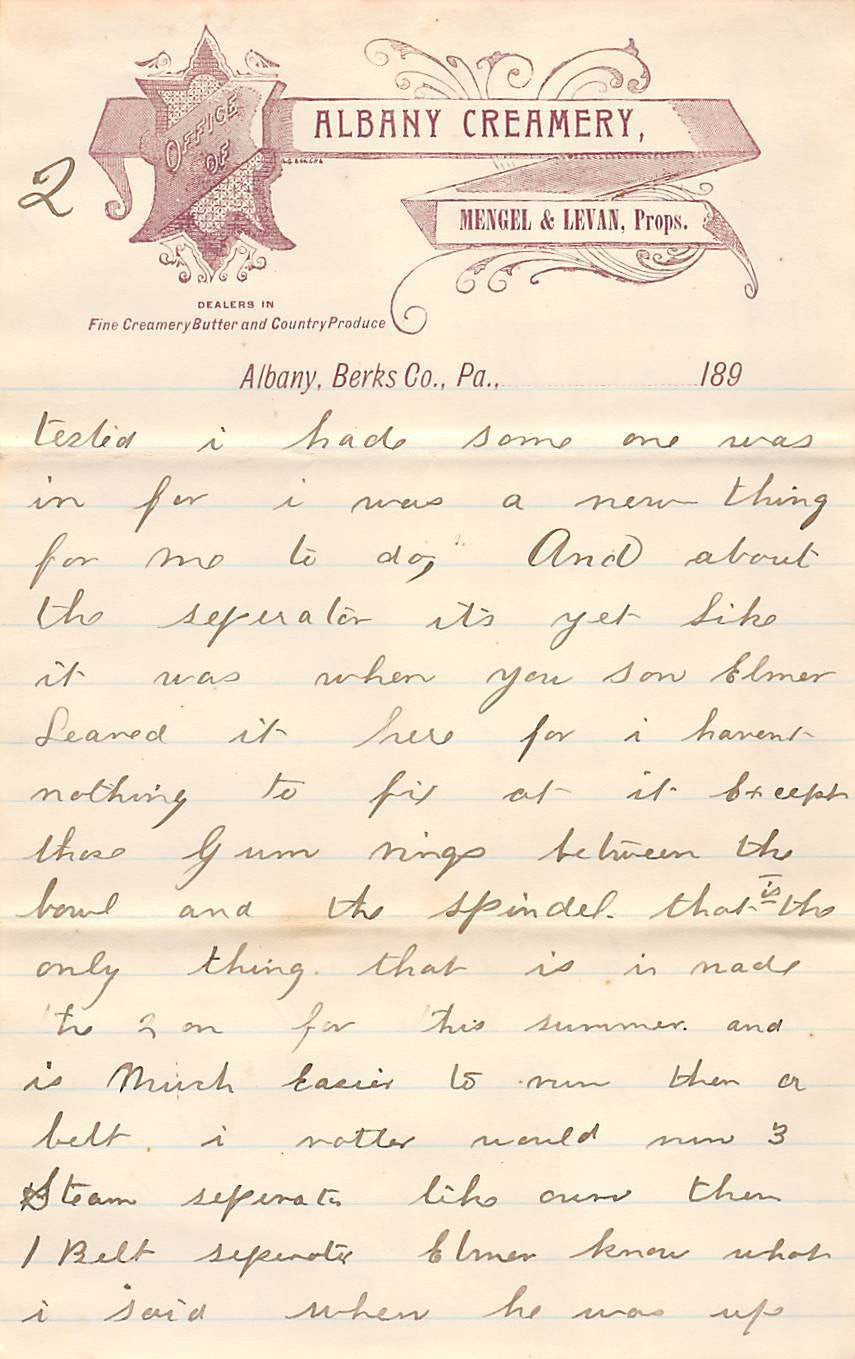 OFFICE
OF
ALBANY CREAMERY,
2
MENGEL & LEVAN, Props.
DEALERS IN
Fine Creamery Butter and Country Produce
Albany, Berks Co., Pa., 189
tested i hade some one was
in for i was a new thing
for me to do, And about
the seperator its yet like
it was when you son Elmer
Leaved it here for i havent
nothing to fix at it Except
those Gum rings between the
bowl and the spindel. that is the
only thing. that is i made
the 2 on for this summer. and
is Much Easier to run then a
belt. i rotter would run 3
Steam seperator like ours then
1 Belt seperator Elmer know what
i said when he was up